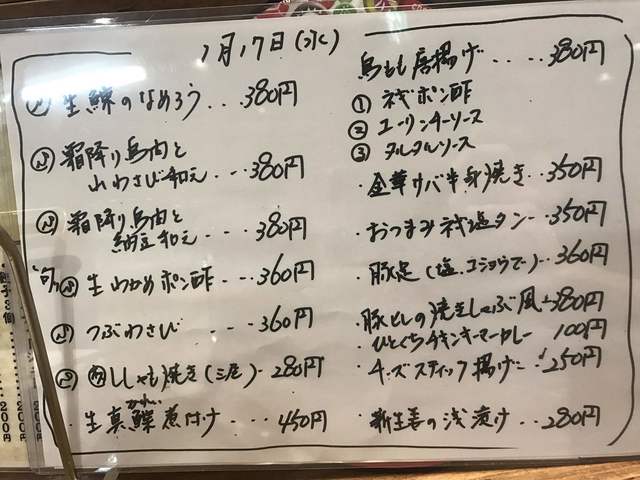 1月17日(水)
生鯵のなめろう...380円
霜降り鳥肉と
山わさび和え...380円
霜降り鳥肉と
納豆和え...380円
旬 生わかめポン酢...360円
つぶわさび----360円
ししゃも焼き(三尾)-280円
かれい
生真鰈煮付け...450円
鳥もも唐揚げ....380円
①ネギポン酢
②ユーリンチーソース
③タルタルソース
・金華サバ半身焼き..350円
・おつまみネギ塩タン--350円
・豚足(塩、コショウで)--360円
・豚とレバの焼きしゃぶ風
380円
・ひとくちチキンキーマカレー100円
・チーズスティック揚げ--250円
・新生姜の浅漬け...280円
200円
200円
200円